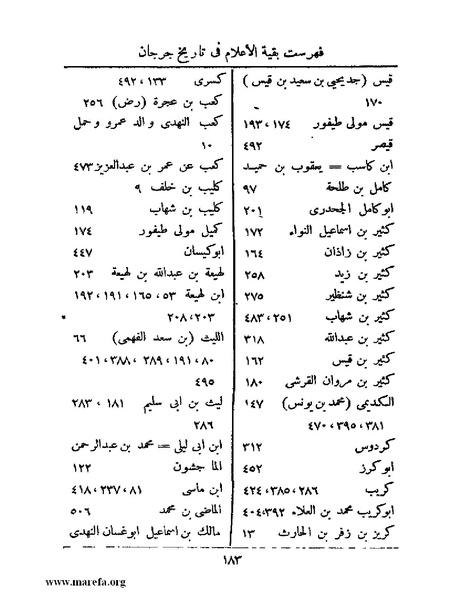 فهرست بقية الأعلام فى تاريخ جرجان
قيس (جد يحيى بن سعيد بن قيس)
١٧٠
قيس مولى طيفور ١٧٤ ، ١٩٣
قيصر ٤٩٢
ابن كاسب = يعقوب بن حميد
كامل بن طلحة ٩٧
ابو كامل الجحدرى ٢٠١
كثير بن اسماعيل النواء ١٧٢
كثير بن زاذان ١٦٤
كثير بن زيد ٢٥٨
كثير بن شنظير ٢٧٥
كثير بن شهاب ٢٥١ ، ٤٨٣
كثير بن عبدالله ٣١٨
كثير بن قيس ١٦٢
كثير بن مروان القرشى ١٨٠
الكديمى (محمد بن يونس) ١٤٧
٣٨١ ، ٣٩٥ ، ٤٧٠
كردوس ٣١٢
ابو كرز ٤٥٢
كريب ٢٨٦ ، ٣٨٥ ، ٤٢٤
ابو كريب محمد بن العلاء ٣٩٢ ، ٤٠٤
كريز بن زفر بن الحارث ١٣
كسرى ١٣٣ ، ٤٩٢
كعب بن عجرة (رض) ٢٥٦
كعب النهدى والد عمرو وحمل
١٠
كعب عن عمر بن عبدالعزيز ٤٧٣
كليب بن خلف ٩
كليب بن شهاب ١١٩
كميل مولى طيفور ١٧٤
ابو كيسان ٤٤٧
لهيعة بن عبدالله بن لهيعة ٢٠٣
ابن لهيعة ٥٣ ، ١٦٥ ، ١٩١ ، ١٩٢
٢٠٣ ، ٢٠٨
الليث (بن سعد الفهمى) ٦٦
٨٠ ، ١٩١ ، ٢٨٩ ، ٣٨٨ ، ٤٠١
٤٩٥
ليث بن ابى سليم ١٨١ ، ٢٨٣
٢٨٦
ابن ابى ليلى = محمد بن عبدالرحمن
الماجشون ١٢٢
ابن ماسى ٨١ ، ٢٣٧ ، ٤١٨
الماضى بن محمد ٥٠٦
مالك بن اسماعيل ابو غسان النهدى
١٨٣
www.marefa.org